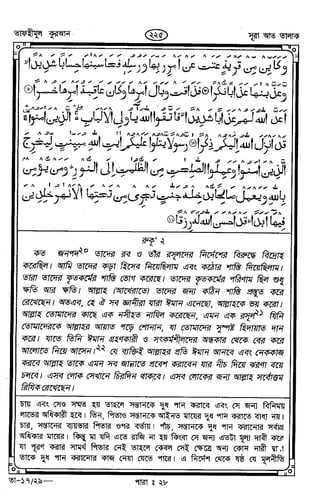 তাফহীমুল কুরআন
২২৫
সূরা আত তালাক
وَكَاَيِّنْ مِّنْ قَرْيَةٍ عَتَتْ عَنْ اَمْرِ رَبِّهَا وَرُسُلِهٖ فَحَاسَبْنٰهَا حِسَابًا شَدِيْدًا
وَّعَذَّبْنٰهَا عَذَابًا نُّكْرًا۞ فَذَاقَتْ وَبَالَ اَمْرِهَا وَكَانَ عَاقِبَةُ اَمْرِهَا خُسْرًا۞
اَعَدَّ اللهُ لَهُمْ عَذَابًا شَدِيْدًا فَاتَّقُوا اللهَ يٰٓاُولِى الْاَلْبَابِ الَّذِيْنَ اٰمَنُوْا
قَدْ اَنْزَلَ اللهُ اِلَيْكُمْ ذِكْرًا۞ رَّسُوْلًا يَّتْلُوْا عَلَيْكُمْ اٰيٰتِ اللهِ مُبَيِّنٰتٍ لِّيُخْرِجَ
الَّذِيْنَ اٰمَنُوْا وَعَمِلُوا الصّٰلِحٰتِ مِنَ الظُّلُمٰتِ اِلَى النُّوْرِ وَمَنْ يُّؤْمِنْ
بِاللهِ وَيَعْمَلْ صَالِحًا يُّدْخِلْهُ جَنّٰتٍ تَجْرِىْ مِنْ تَحْتِهَا الْاَنْهٰرُ خٰلِدِيْنَ
فِيْهَآ اَبَدًا قَدْ اَحْسَنَ اللهُ لَهٗ رِزْقًا۞
রুকূ' ২
কত জনপদ২০ তাদের রব ও তাঁর রসূলদের নির্দেশের বিরুদ্ধে বিদ্রোহ
করেছিল। আমি তাদের কড়া হিসেব নিয়েছিলাম এবং কঠোর শাস্তি দিয়েছিলাম।
তারা তাদের কৃতকর্মের শাস্তি ভোগ করেছে। তাদের কৃতকর্মের পরিণাম ছিল শুধু
ক্ষতি আর ক্ষতি। আল্লাহ (আখেরাতে) তাদের জন্য কঠিন শাস্তি প্রস্তুত করে
রেখেছেন। অতএব, হে ঐ সব জ্ঞানীরা যারা ঈমান এনেছো, আল্লাহকে ভয় করো।
আল্লাহ তোমাদের কাছে এক নসীহত নাযিল করেছেন, এমন এক রসূল২১ যিনি
তোমাদেরকে আল্লাহর আয়াত পড়ে শোনান, যা তোমাদের সুস্পষ্ট হিদায়াত দান
করে। যাতে তিনি ঈমান গ্রহণকারী ও সৎকর্মশীলদের অন্ধকার থেকে বের করে
আলোতে নিয়ে আসেন।২২ যে ব্যক্তিই আল্লাহর প্রতি ঈমান আনবে এবং নেককাজ
করবে আল্লাহ তাকে এমন সব জান্নাতে প্রবেশ করাবেন যার নীচ দিয়ে ঝরণা বয়ে
চলবে। এসব লোক সেখানে চিরদিন থাকবে। এসব লোকের জন্য আল্লাহ সর্বোত্তম
রিযিক রেখেছেন।
চায় এবং সেও সম্মত হয় তাহলে সন্তানকে দুধ পান করাবে এবং সে জন্য বিনিময়
লাভের অধিকারী হবে। তিন, পিতাও সন্তানকে আইনত মায়ের দুধ পান করাতে বাধ্য নয়।
চার, সন্তানের ব্যয়ভার পিতার ওপর বর্তায়। পাঁচ, সন্তানকে দুধ পান করানোর সর্বাগ্র
অধিকার মায়ের। কিন্তু মা যদি এতে রাজি না হয় কিংবা সে জন্য এতটা মূল্য দাবী করে
যা পূরণ করার সামর্থ পিতার নেই তাহলে কেবল সেই ক্ষেত্রে অন্য কোন নারী দ্বারা
তাকে দুধ পান করানোর কাজ নেয়া যেতে পারে। এ নির্দেশ থেকে ষষ্ঠ যে মূলনীতি
তা–১৭/২৯—
পারা ঃ ২৮